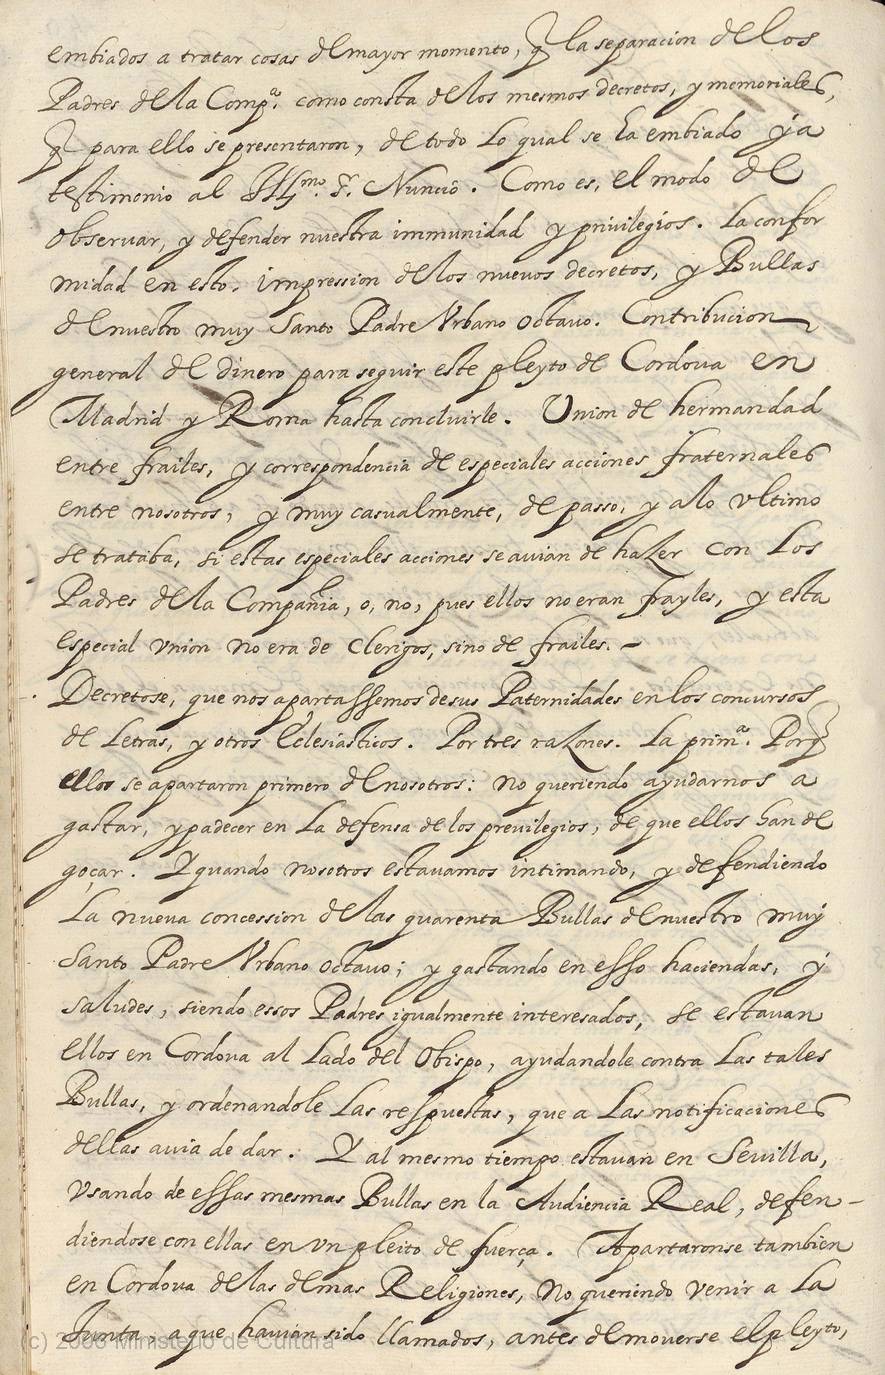 embiados a tratar cosas del mayor momento, q̃ la separacion de los
Padres de la Compª. como consta de los mesmos decretos, y memoriales,
q̃ para ello se presentaron, de todo lo qual se ha embiado ya
testimonio al Illᵐᵒ. Sʳ. Nuncio. Como es, el modo de
observar, y defender nuestra immunidad y privilegios. La confor
midad en esto. Impression de los nuevos decretos, y Bullas
de nuestro muy Santo Padre Vrbano octavo. Contribucion
general de dinero para seguir este pleyto de Cordova en
Madrid y Roma hasta concluirle. Union de hermandad
entre frailes, y correspondencia de especiales acciones fraternales
entre nosotros, y muy casualmente, de passo, y a lo vltimo
se trataba, si estas especiales acciones se avian de hazer con los
Padres de la Compañia, o, no, pues ellos no eran frayles, y esta
especial vnion no era de Clerigos, sino de frailes. -
Decretose, que nos apartassemos de sus Paternidades en los concursos
de Letras, y otros Eclesiasticos. Por tres razones. La primª. Porq̃
ellos se apartaron primero de nosotros: no queriendo ayudarnos a
gastar, y padecer en la defensa de los previlegios, de que ellos han de
goçar. Y quando nosotros estavamos intimando, y defendiendo
La nueva concession de las quarenta Bullas de nuestro muy
Santo Padre Vrbano octavo; y gastando en esso haciendas, y
saludes, siendo essos Padres igualmente interesados, se estavan
ellos en Cordova al Lado del Obispo, ayudandole contra las tales
Bullas, y ordenandole las respuestas, que a las notificaciones
dellas avia de dar. Y al mesmo tiempo estavan en Sevilla,
vsando de essas mesmas Bullas en la Audiencia Real, defen-
diendose con ellas en vn pleito de fuerça. Apartaronse tambien
en Cordova de las demas Religiones, no queriendo venir a la
Junta, a que havian sido llamados, antes de moverse el pleyto,
(c) 2006 Ministerio de Cultura